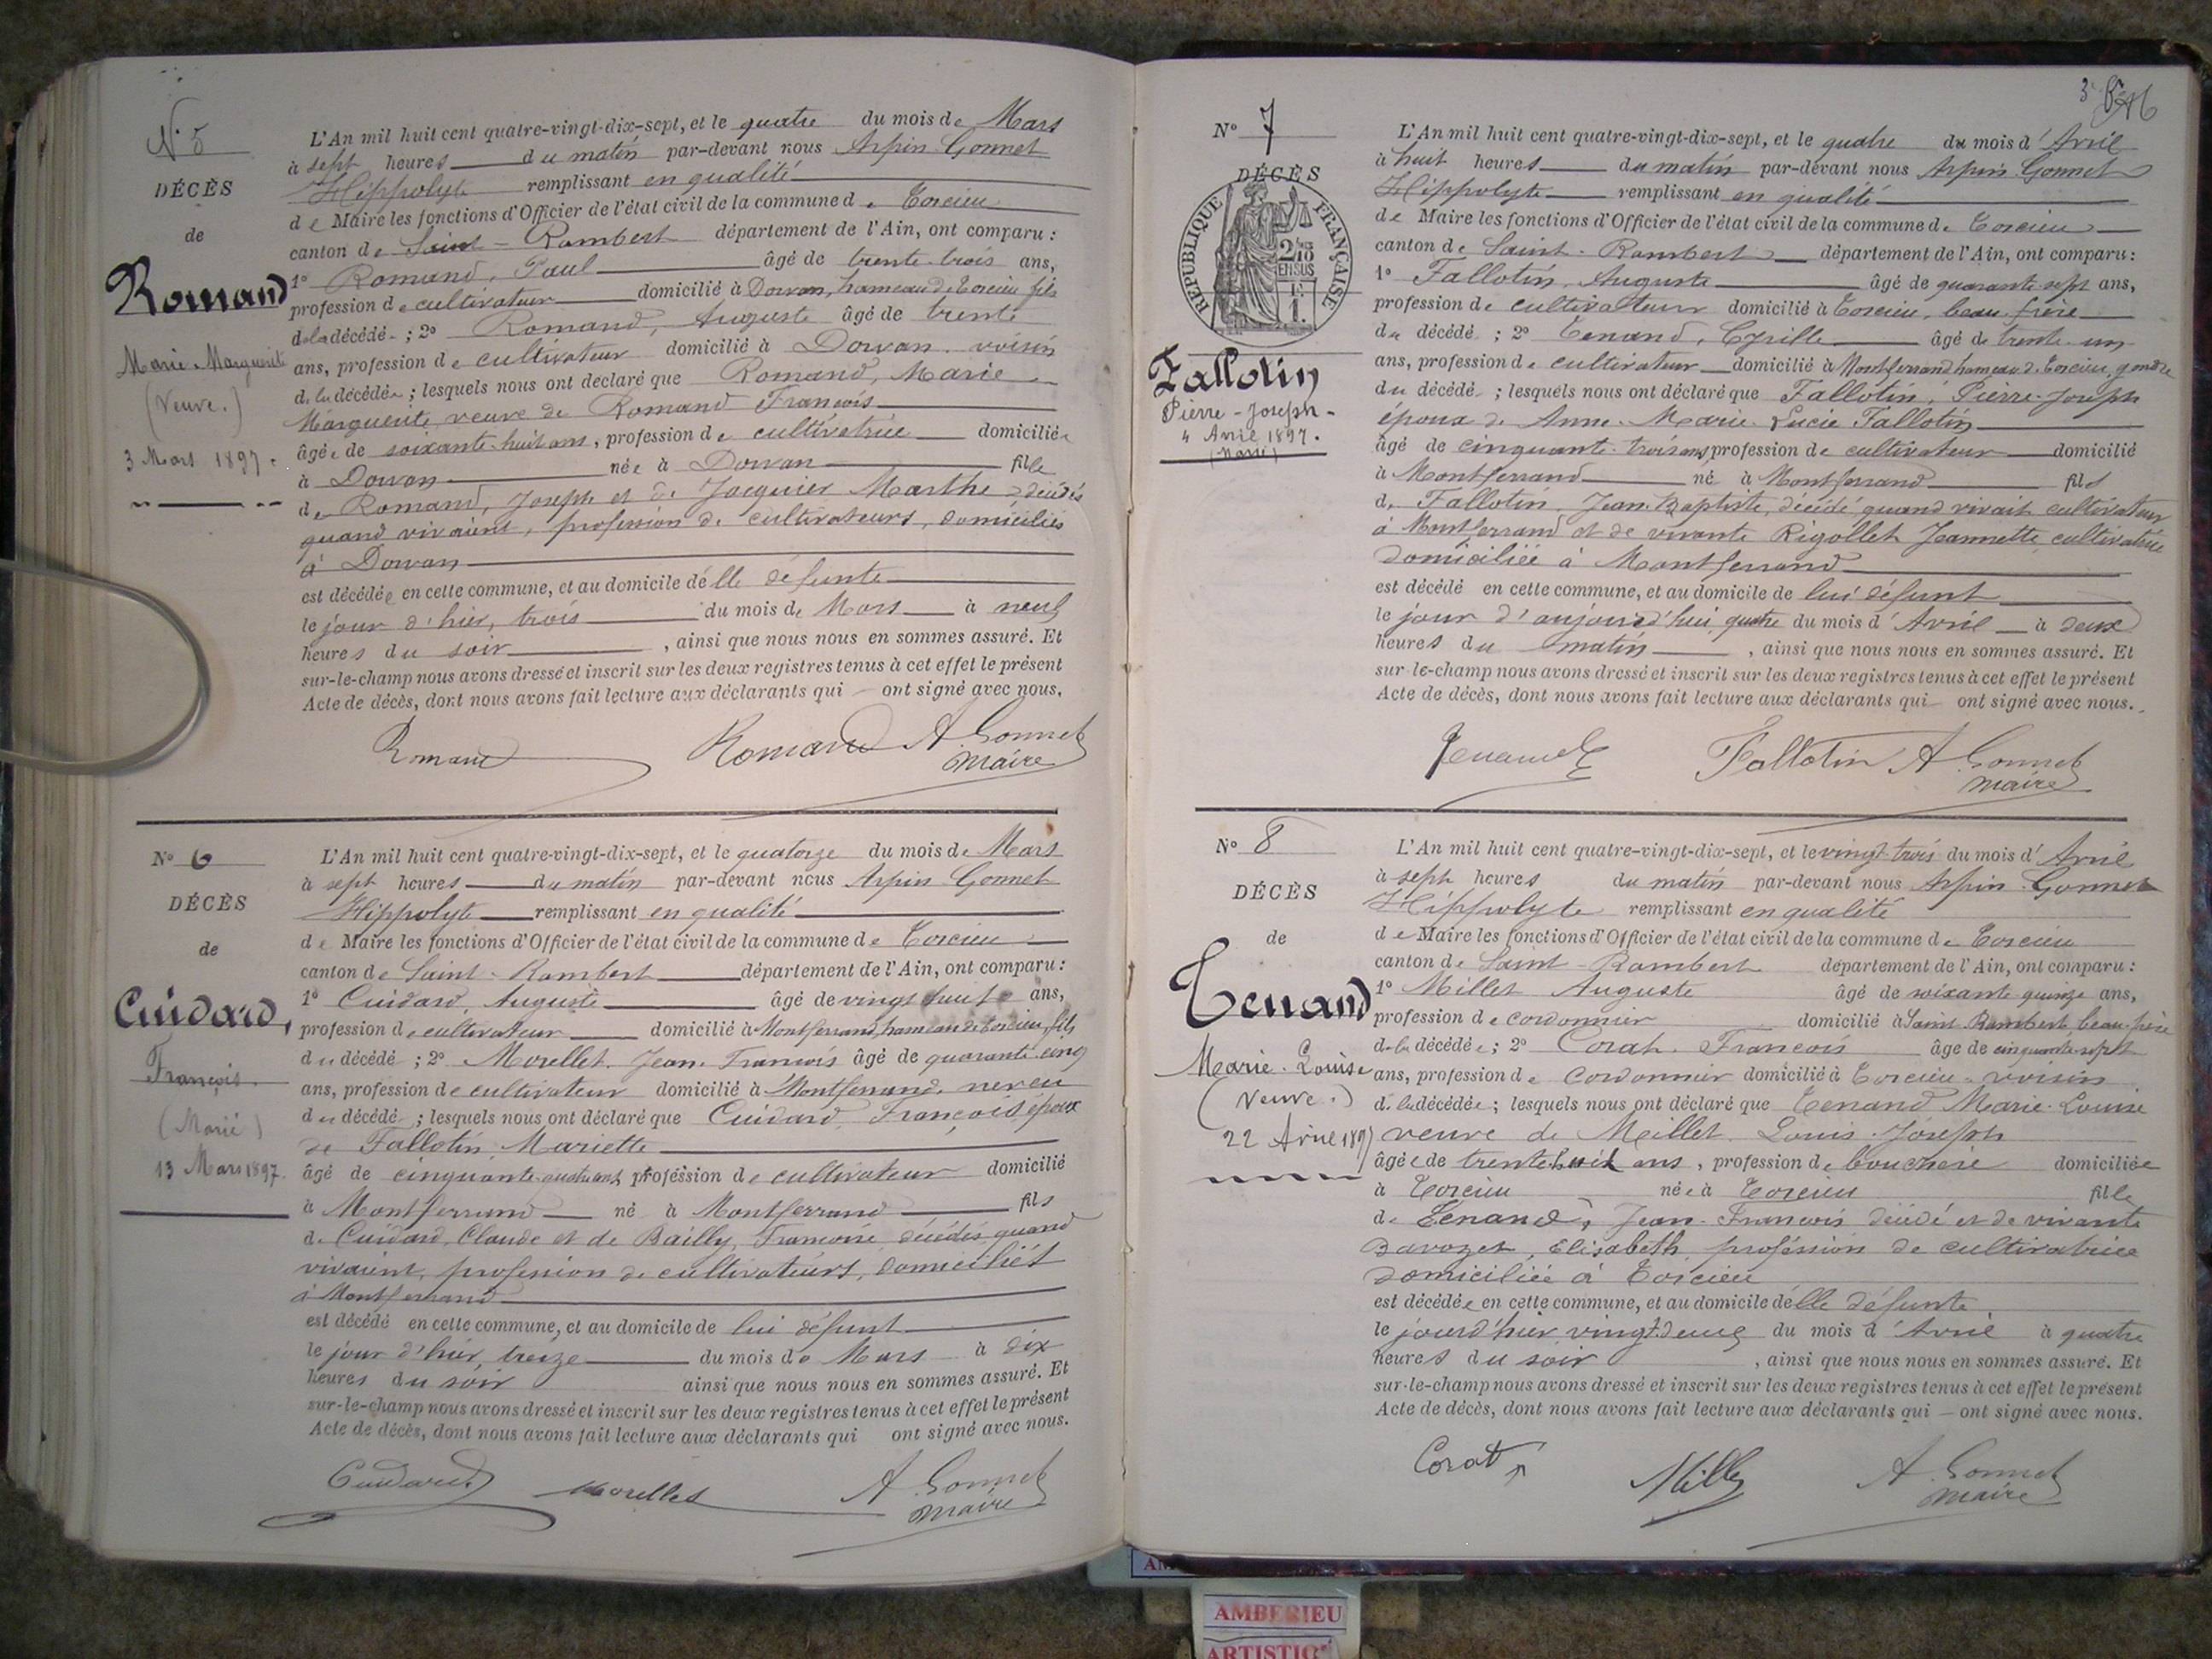 N° 5
DÉCÈS
de
Romand
Marie-Marguerite
(Veuve.)
3 Mars 1897.
L'An mil huit cent quatre-vingt-dix-sept, et le quatre du mois de Mars
à sept heures du matin par-devant nous Arpin-Gonnet
Hippolyte remplissant en qualité
de Maire les fonctions d'Officier de l'état civil de la commune de Torcieu
canton de Saint-Rambert département de l'Ain, ont comparu :
1° Romand, Paul âgé de trente-trois ans,
profession de cultivateur domicilié à Dorvan, hameau de Torcieu fils
de la décédé ; 2° Romand, Auguste âgé de trente
ans, profession de cultivateur domicilié à Dorvan voisin
de la décédée ; lesquels nous ont déclaré que Romand, Marie
Marguerite veuve de Romand François
âgée de soixante-huit ans, profession de cultivatrice domiciliée
à Dorvan née à Dorvan fille
de Romand, Joseph et de Jacquier Marthe décédés
quand vivaient, profession de cultivateurs, domiciliés
à Dorvan
est décédée en cette commune, et au domicile d'elle défunte
le jour d'hier, trois du mois de Mars à neuf
heures du soir, ainsi que nous nous en sommes assuré. Et
sur-le-champ nous avons dressé et inscrit sur les deux registres tenus à cet effet le présent
Acte de décès, dont nous avons fait lecture aux déclarants qui ont signé avec nous.
Romand Romand A. Gonnet
maire
N° 6
DÉCÈS
de
Cuidard,
François.
(Marié)
13 Mars 1897.
L'An mil huit cent quatre-vingt-dix-sept, et le quatorze du mois de Mars
à sept heures du matin par-devant nous Arpin-Gonnet
Hippolyte remplissant en qualité
de Maire les fonctions d'Officier de l'état civil de la commune de Torcieu
canton de Saint-Rambert département de l'Ain, ont comparu :
1° Cuidard, Auguste âgé de vingt huit ans,
profession de cultivateur domicilié à Montferrand, hameau de Torcieu, fils
du décédé ; 2° Morellet Jean-François âgé de quarante-cinq
ans, profession de cultivateur domicilié à Montferrand, neveu
du décédé ; lesquels nous ont déclaré que Cuidard, François époux
de Fallotin Mariette
âgé de cinquante-quatre ans, profession de cultivateur domicilié
à Montferrand né à Montferrand fils
de Cuidard, Claude et de Bailly, Françoise, décédés, quand
vivaient, profession de cultivateurs, domiciliés
à Montferrand
est décédé en cette commune, et au domicile de lui défunt
le jour d'hier, treize du mois de Mars à dix
heures du soir ainsi que nous nous en sommes assuré. Et
sur-le-champ nous avons dressé et inscrit sur les deux registres tenus à cet effet le présent
Acte de décès, dont nous avons fait lecture aux déclarants qui ont signé avec nous.
Cuidard Morellet A. Gonnet
maire
N° 7
DÉCÈS
RÉPUBLIQUE FRANÇAISE
2/10
EN SUS
1 F.
Fallotin
Pierre-Joseph-
4 Avril 1897.
(marié)
L'An mil huit cent quatre-vingt-dix-sept, et le quatre du mois d'Avril
à huit heures du matin par-devant nous Arpin-Gonnet
Hippolyte remplissant en qualité
de Maire les fonctions d'Officier de l'état civil de la commune de Torcieu
canton de Saint-Rambert département de l'Ain, ont comparu :
1° Fallotin, Auguste âgé de quarante-sept ans,
profession de cultivateur domicilié à Torcieu, beau-frère
du décédé ; 2° Tenand, Cyrille âgé de trente-un
ans, profession de cultivateur domicilié à Montferrand hameau de Torcieu, gendre
du décédé ; lesquels nous ont déclaré que Fallotin, Pierre-Joseph
époux de Anne-Marie-Lucie Fallotin
âgé de cinquante-trois ans, profession de cultivateur domicilié
à Montferrand né à Montferrand fils
de Fallotin, Jean-Baptiste, décédé quand vivait cultivateur
à Montferrand et de vivante Rigollet Jeannette cultivatrice
domiciliée à Montferrand
est décédé en cette commune, et au domicile de lui défunt
le jour d'aujourd'hui quatre du mois d'Avril à deux
heures du matin, ainsi que nous nous en sommes assuré. Et
sur-le-champ nous avons dressé et inscrit sur les deux registres tenus à cet effet le présent
Acte de décès, dont nous avons fait lecture aux déclarants qui ont signé avec nous.
Tenand Fallotin A. Gonnet
maire
N° 8
DÉCÈS
de
Tenand
Marie-Louise
(Veuve.)
22 Avril 1897
L'An mil huit cent quatre-vingt-dix-sept, et le vingt-trois du mois d'Avril
à sept heures du matin par-devant nous Arpin-Gonnet
Hippolyte remplissant en qualité
de Maire les fonctions d'Officier de l'état civil de la commune de Torcieu
canton de Saint-Rambert département de l'Ain, ont comparu :
1° Millet Auguste âgé de soixante quinze ans,
profession de cordonnier domicilié à Saint-Rambert, beau-père
de la décédée ; 2° Corat François âgé de cinquante-sept
ans, profession de cordonnier domicilié à Torcieu voisin
de la décédée ; lesquels nous ont déclaré que Tenand Marie-Louise
veuve de Millet Louis-Joseph
âgée de trente huit ans, profession de bouchère domiciliée
à Torcieu née à Torcieu fille
de Tenand, Jean-François décédé et de vivante
Davozet, Elisabeth, profession de cultivatrice
domiciliée à Torcieu
est décédée en cette commune, et au domicile d'elle défunte
le jour d'hier vingt-deux du mois d'Avril à quatre
heures du soir, ainsi que nous nous en sommes assuré. Et
sur-le-champ nous avons dressé et inscrit sur les deux registres tenus à cet effet le présent
Acte de décès, dont nous avons fait lecture aux déclarants qui ont signé avec nous.
Corat Millet A. Gonnet
maire
AMBERIEU
ARTISTIC